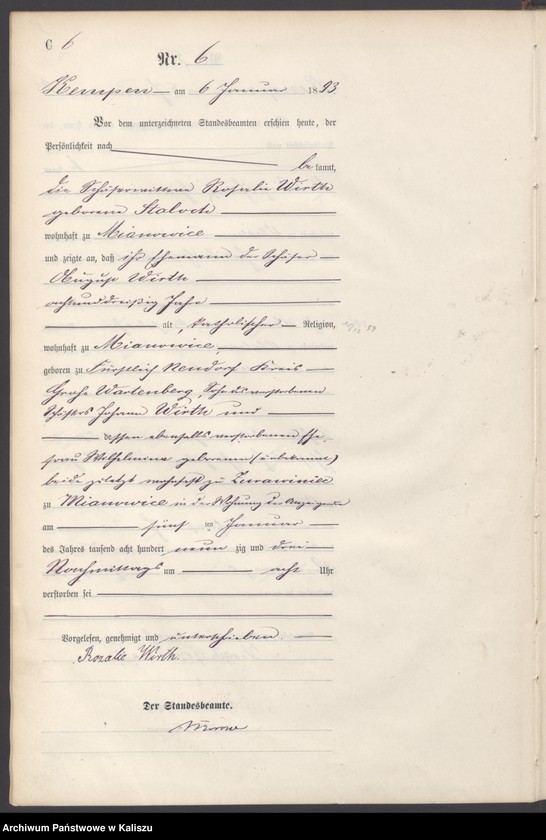 C 6
Nr. 6
Kempen am 6 Januar 1893
Vor dem unterzeichneten Standesbeamten erschien heute, der
Persönlichkeit nach
be kannt,
die Schäferwittwe Rosalie Wirth
geborene Staloch
wohnhaft zu Mianowice
und zeigte an, daß ihr Ehemann der Schäfer
August Wirth
achtunddreißig Jahre
alt, katholischer Religion,
wohnhaft zu Mianowice,
geboren zu Fürstlich Neudorf Kreis
Groß Wartenberg, Sohn des verstorbenen
Schäfers Johann Wirth und
dessen ebenfalls verstorbenen Ehe
frau Wilhelmine geborenen (unbekannt)
beide zuletzt wohnhaft zu
zu Mianowice in der Wohnung der Anzeigende
am fünf ten Januar
des Jahres tausend acht hundert neun zig und drei
Nachmittags um acht Uhr
verstorben sei
Vorgelesen, genehmigt und unterschrieben.
Rozalie Wirth.
Der Standesbeamte.
Archiwum Państwowe w Kaliszu